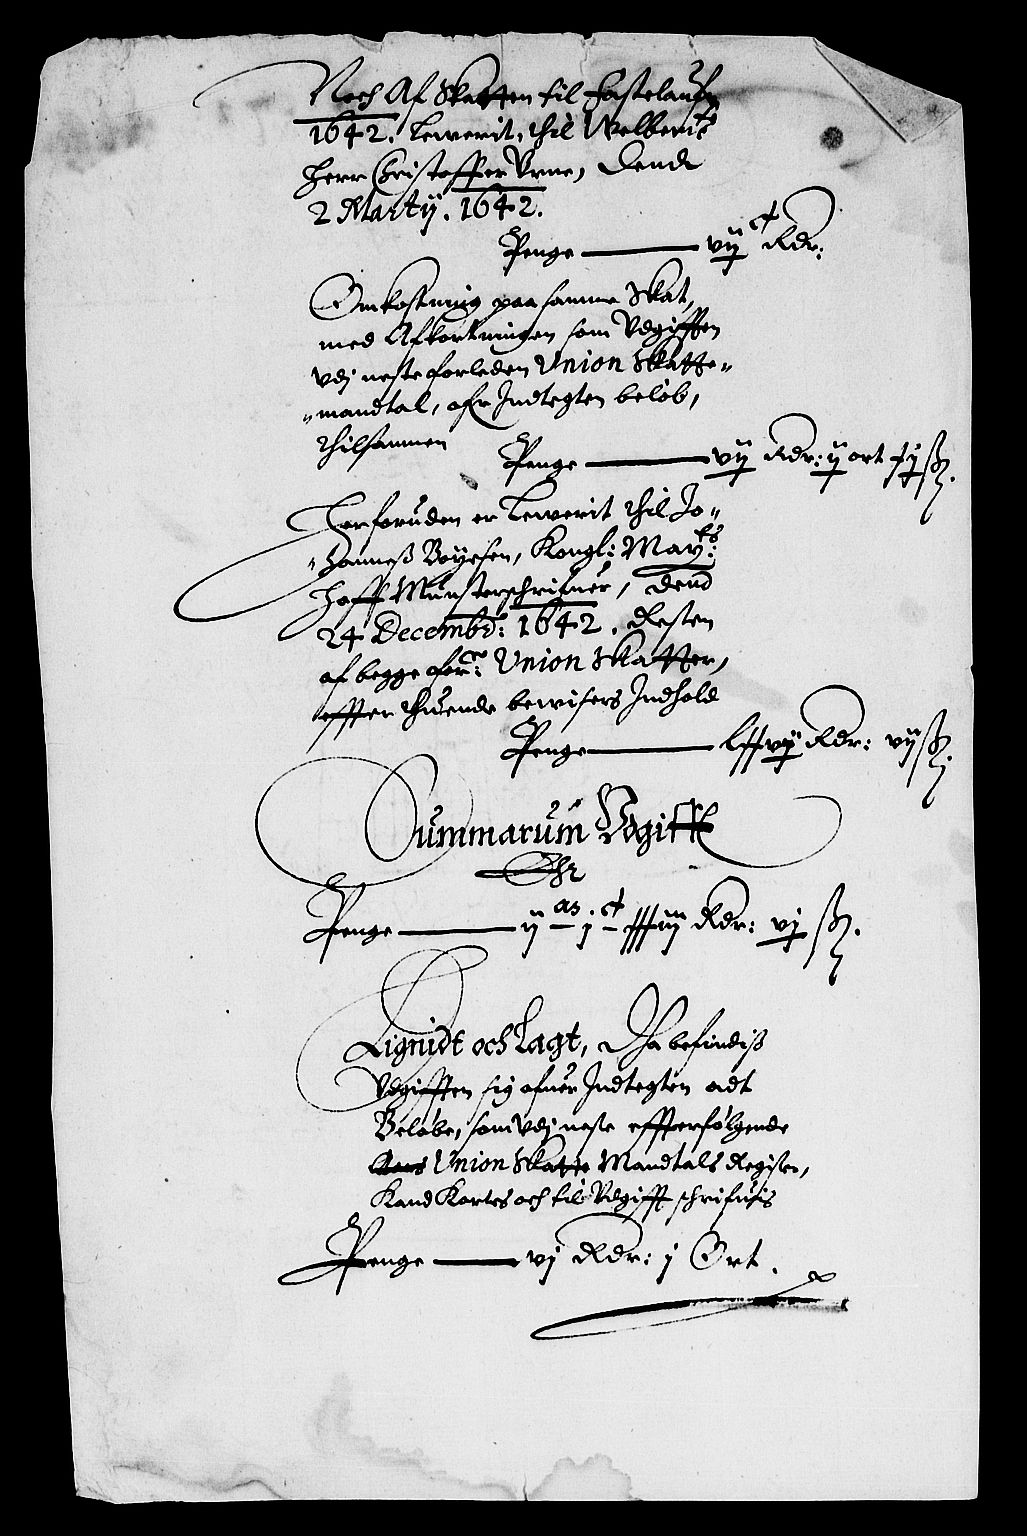 Noch Af Skatten til Fastelaufn
1642. Lewerit, thil Welberne
Herr Christoffer Vrne, Dend
2 Martij. 1642.
Penge ——— vij c Rdr:
Omkostning paa samme Skat,
med Afkortningen som Vdgifften
vdj neste forleden Union Skatte-
-mandtal, ofr Indtegten beløb,
thilsammen
Penge ——— vij Rdr: ij ort xij ß.
Herforuden er Lewerit thil Jo-
-hanneß Boyesen, Kongl: Mayts:
Hoff Munsterschrifuer, Dend
24 Decembr: 1642. Resten
af begge forne: Union Skatter,
effter thuende bewisers Indhold
Penge ——— Lxxvij Rdr: vij ß.
Summarum Vdgifft
Ehr
Penge ——— ij m j c xxxiiij Rdr: vj ß.
Lignidt och Lagt, Da befindiß
Vdgifften sig ofuer Indtegten adt
Beløbe, som vdj neste effterfølgende
Union Skatte Mandtals Register,
Kand Kortes och til Vdgifft schrifuis
Penge ——— vj Rdr: j Ort.